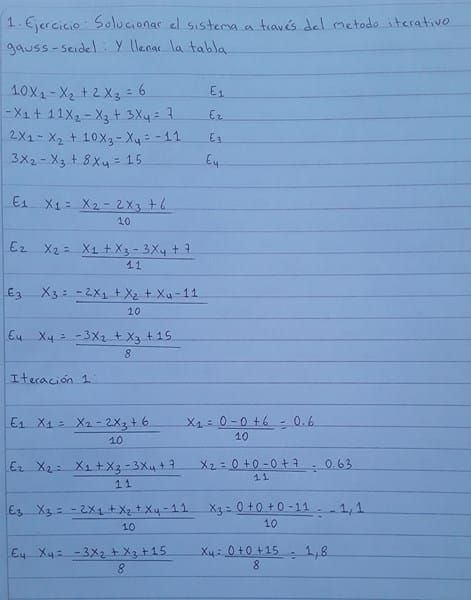 1. Ejercicio: Solucionar el sistema a través del metodo iterativo
gauss-seidel: Y llenar la tabla
10X1 - X2 + 2X3 = 6 E1
-X1 + 11X2 - X3 + 3X4 = 7 E2
2X1 - X2 + 10X3 - X4 = -11 E3
3X2 - X3 + 8X4 = 15 E4
E1 X1 = X2 - 2X3 + 6
10
E2 X2 = X1 + X3 - 3X4 + 7
11
E3 X3 = -2X1 + X2 + X4 - 11
10
E4 X4 = -3X2 + X3 + 15
8
Iteración 1
E1 X1 = X2 - 2X3 + 6 X1 = 0 - 0 + 6 = 0.6
10 10
E2 X2 = X1 + X3 - 3X4 + 7 X2 = 0 + 0 - 0 + 7 = 0.63
11 11
E3 X3 = -2X1 + X2 + X4 - 11 X3 = 0 + 0 + 0 - 11 = -1,1
10 10
E4 X4 = -3X2 + X3 + 15 X4 = 0 + 0 + 15 = 1,8
8 8